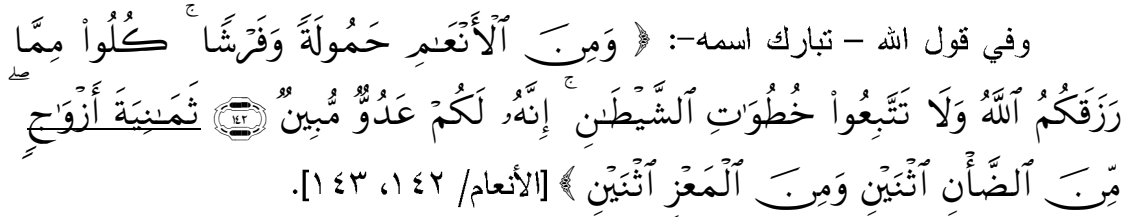 وفي قول الله – تبارك اسمه–: ﴿ وَمِنَ ٱلْأَنْعَـٰمِ حَمُولَةً وَفَرْشًا ۚ كُلُوا۟ مِمَّا
رَزَقَكُمُ ٱللَّهُ وَلَا تَتَّبِعُوا۟ خُطُوَٰتِ ٱلشَّيْطَـٰنِ ۚ إِنَّهُۥ لَكُمْ عَدُوٌّ مُّبِينٌ ۝١٤٢ ثَمَـٰنِيَةَ أَزْوَٰجٍ ۖ
مِّنَ ٱلضَّأْنِ ٱثْنَيْنِ وَمِنَ ٱلْمَعْزِ ٱثْنَيْنِ ﴾ [الأنعام/ ١٤٢، ١٤٣].